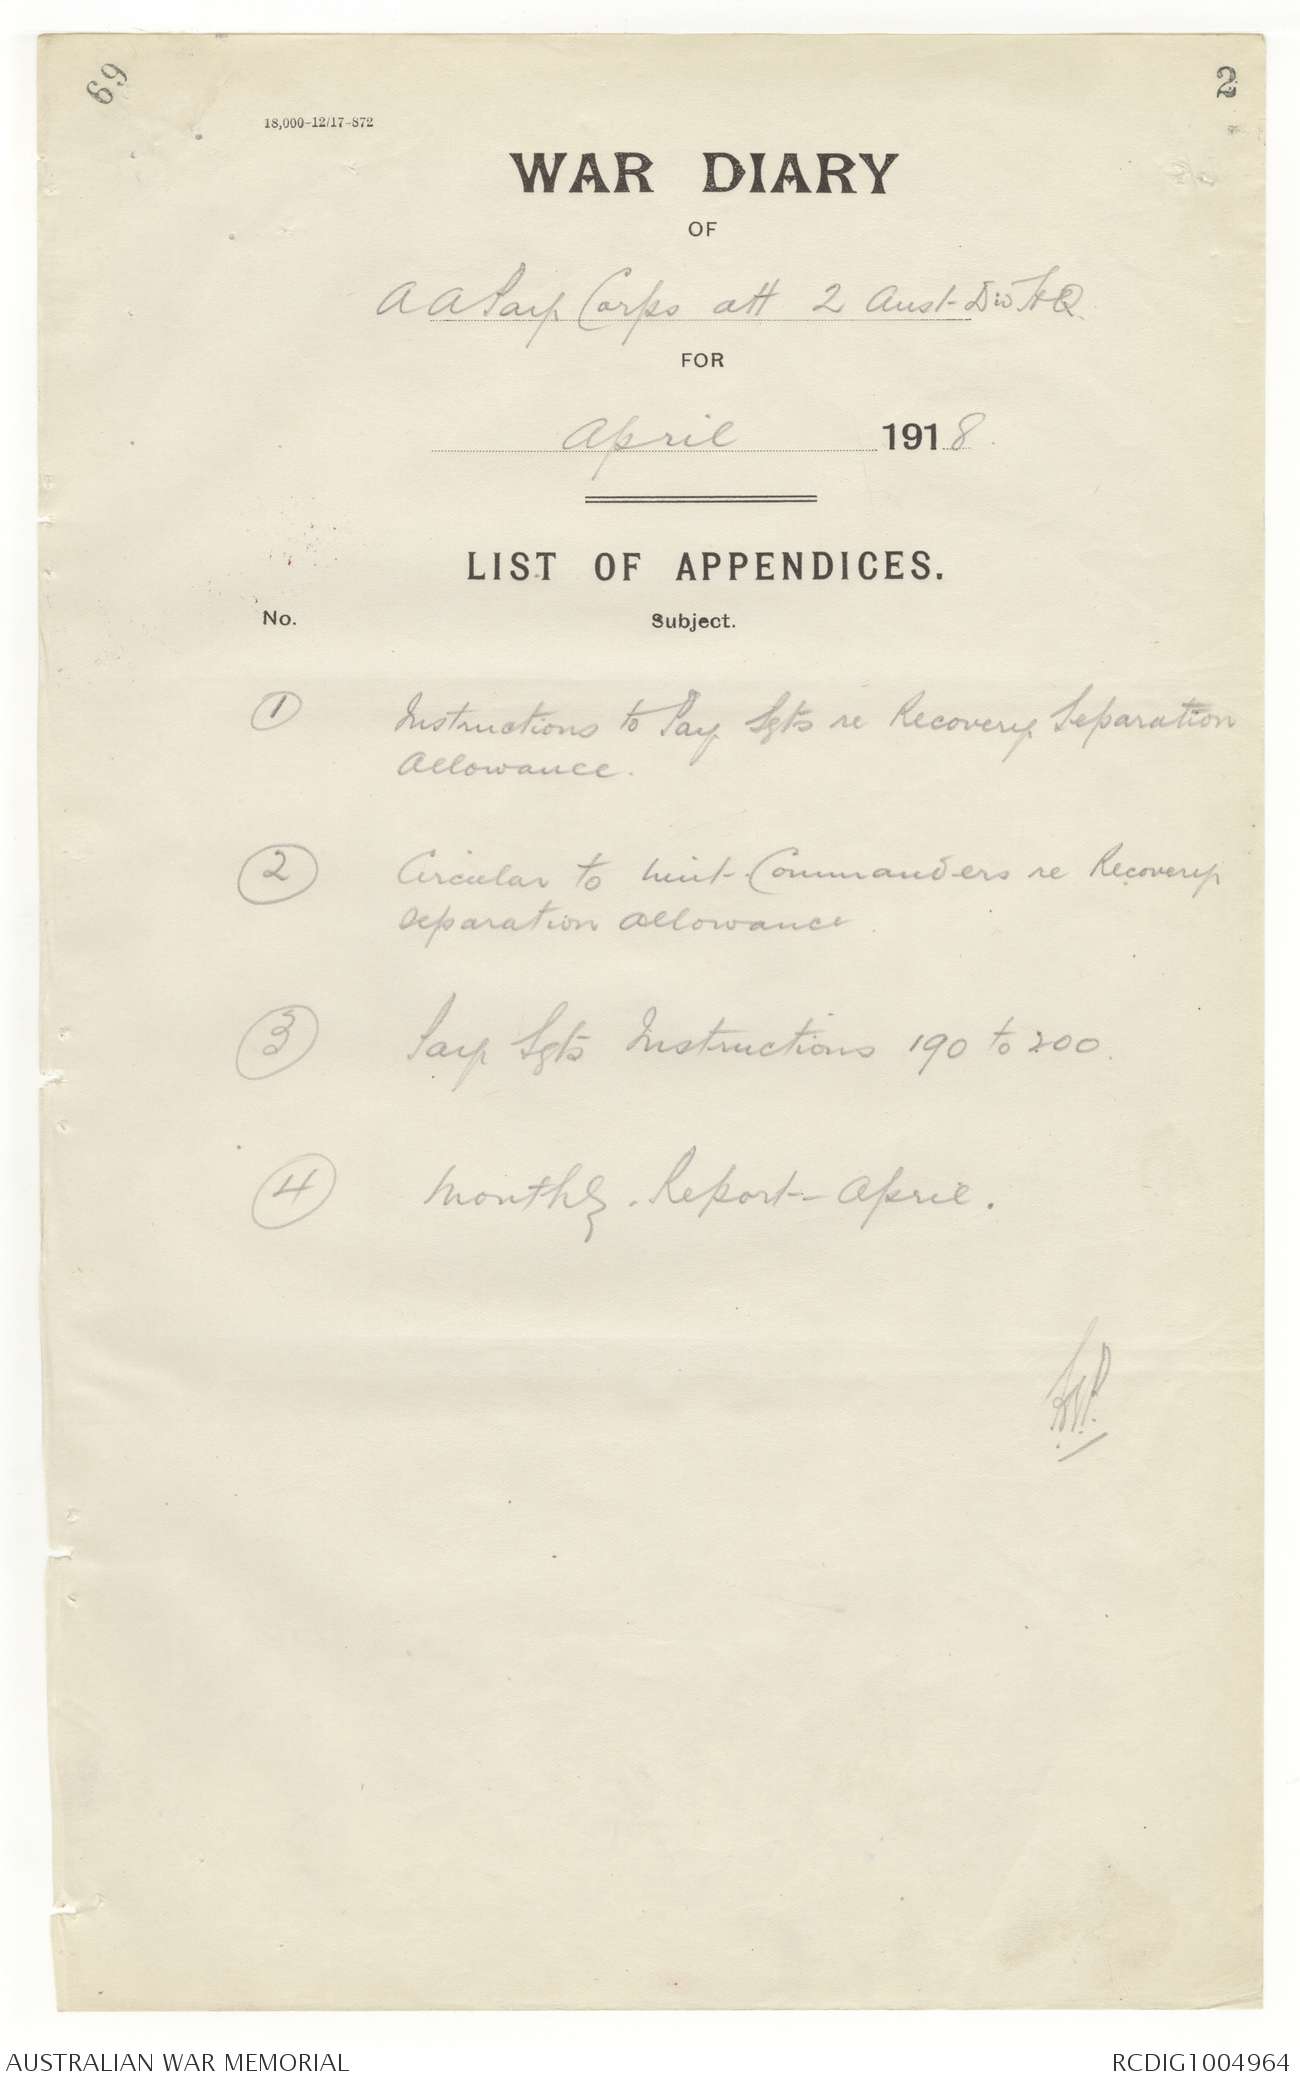 69
2
18,000-12/17-872
WAR DIARY
OF
A A Pay Corps att 2 Aust Div HQ.
FOR
April 1918.
LIST OF APPENDICES.
No. Subject.
1 Instructions to Pay Sgts re Recovery Separation
Allowance.
2 Circular to Unit Commanders re Recovery
Separation Allowance.
3 Pay Sgts Instructions 190 to 200.
4 Monthly Report - April.
AUSTRALIAN WAR MEMORIAL
RCDIG1004964